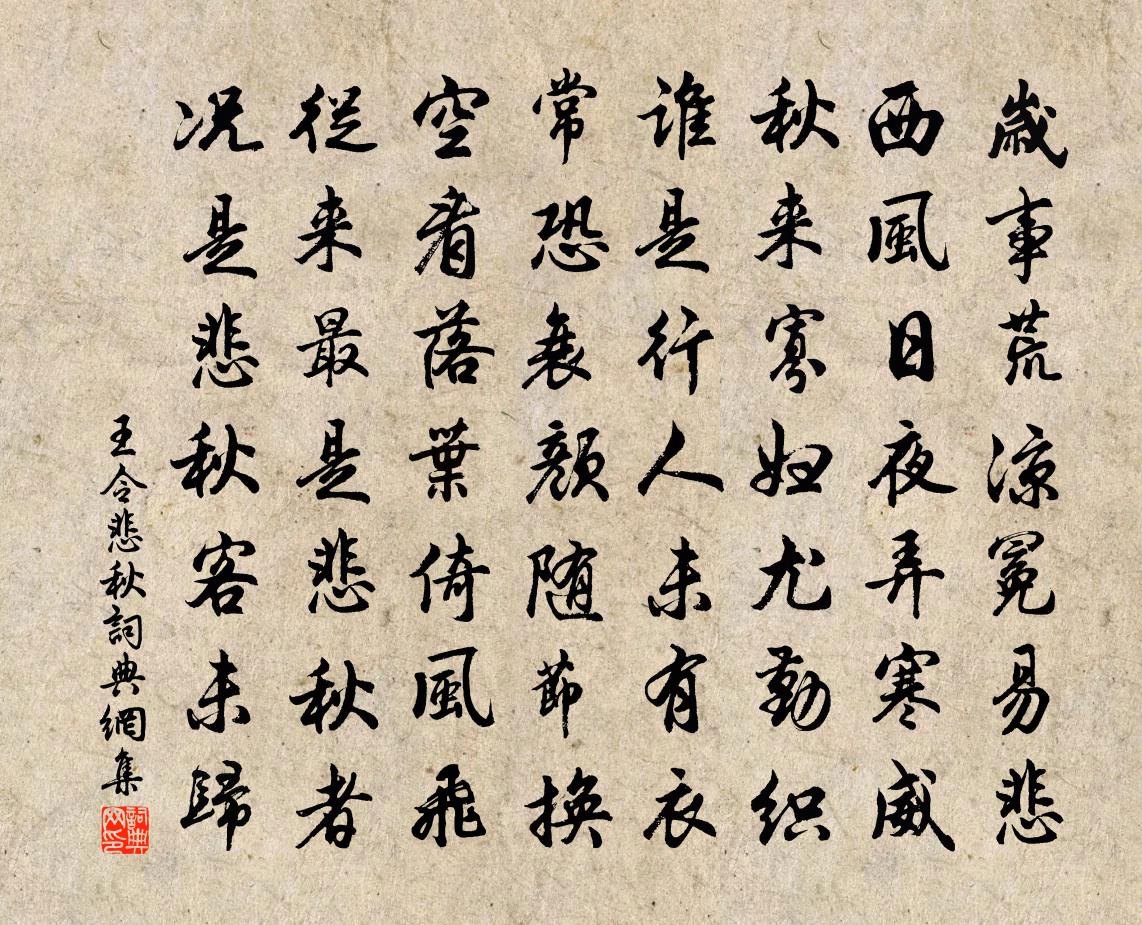 歲事荒涼冤易悲
西風日夜弄寒威
秋来寡妇尤勤织
谁是行人未有衣
常恐衰顔随節換
空看落葉倚風飛
從来最是悲秋者
况是悲秋客未歸
王令悲秋詞典網集
詞典网印